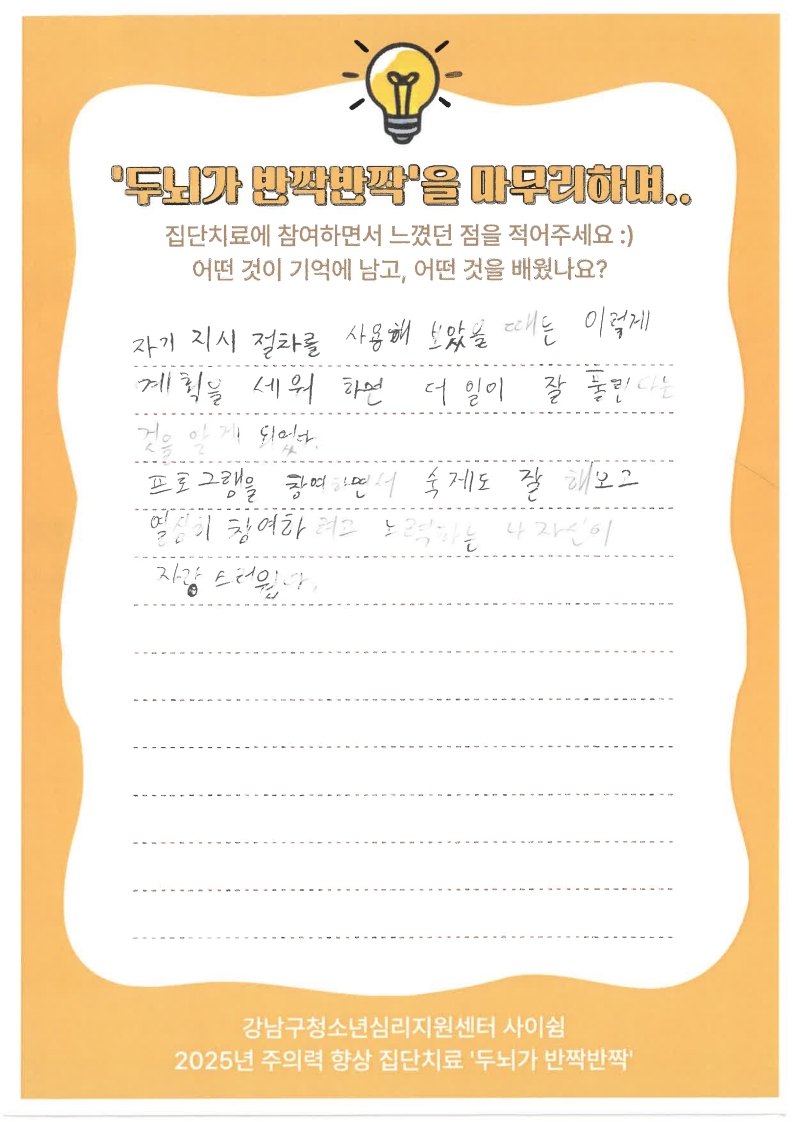 '두뇌가 반짝반짝'을 마무리하며..
집단치료에 참여하면서 느꼈던 점을 적어주세요 :)
어떤 것이 기억에 남고, 어떤 것을 배웠나요?
자기 지시 절차를 사용해 보았을 때는 이렇게
계획을 세워 하면 더 일이 잘 풀린다는
것을 알게 되었다.
프로그램을 참여하면서 숙제도 잘 해오고
열심히 참여하려고 노력하는 나 자신이
자랑스러웠다.
강남구청소년심리지원센터 사이쉼
2025년 주의력 향상 집단치료 '두뇌가 반짝반짝'